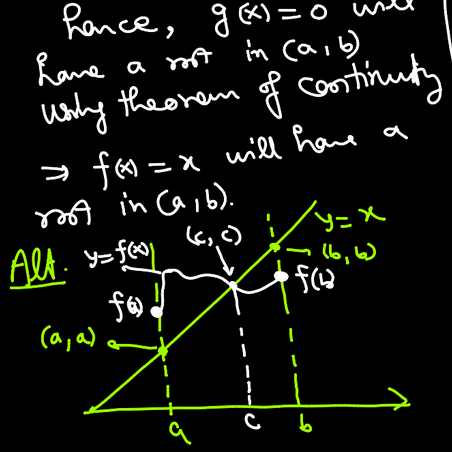 hence, g(x) = 0 will
have a root in (a, b)
using theorem of continuity
⇒ f(x) = x will have a
root in (a, b).
Alt. y = f(x) (c, c) y = x
(b, b)
f(a) f(b)
(a, a)
a c b